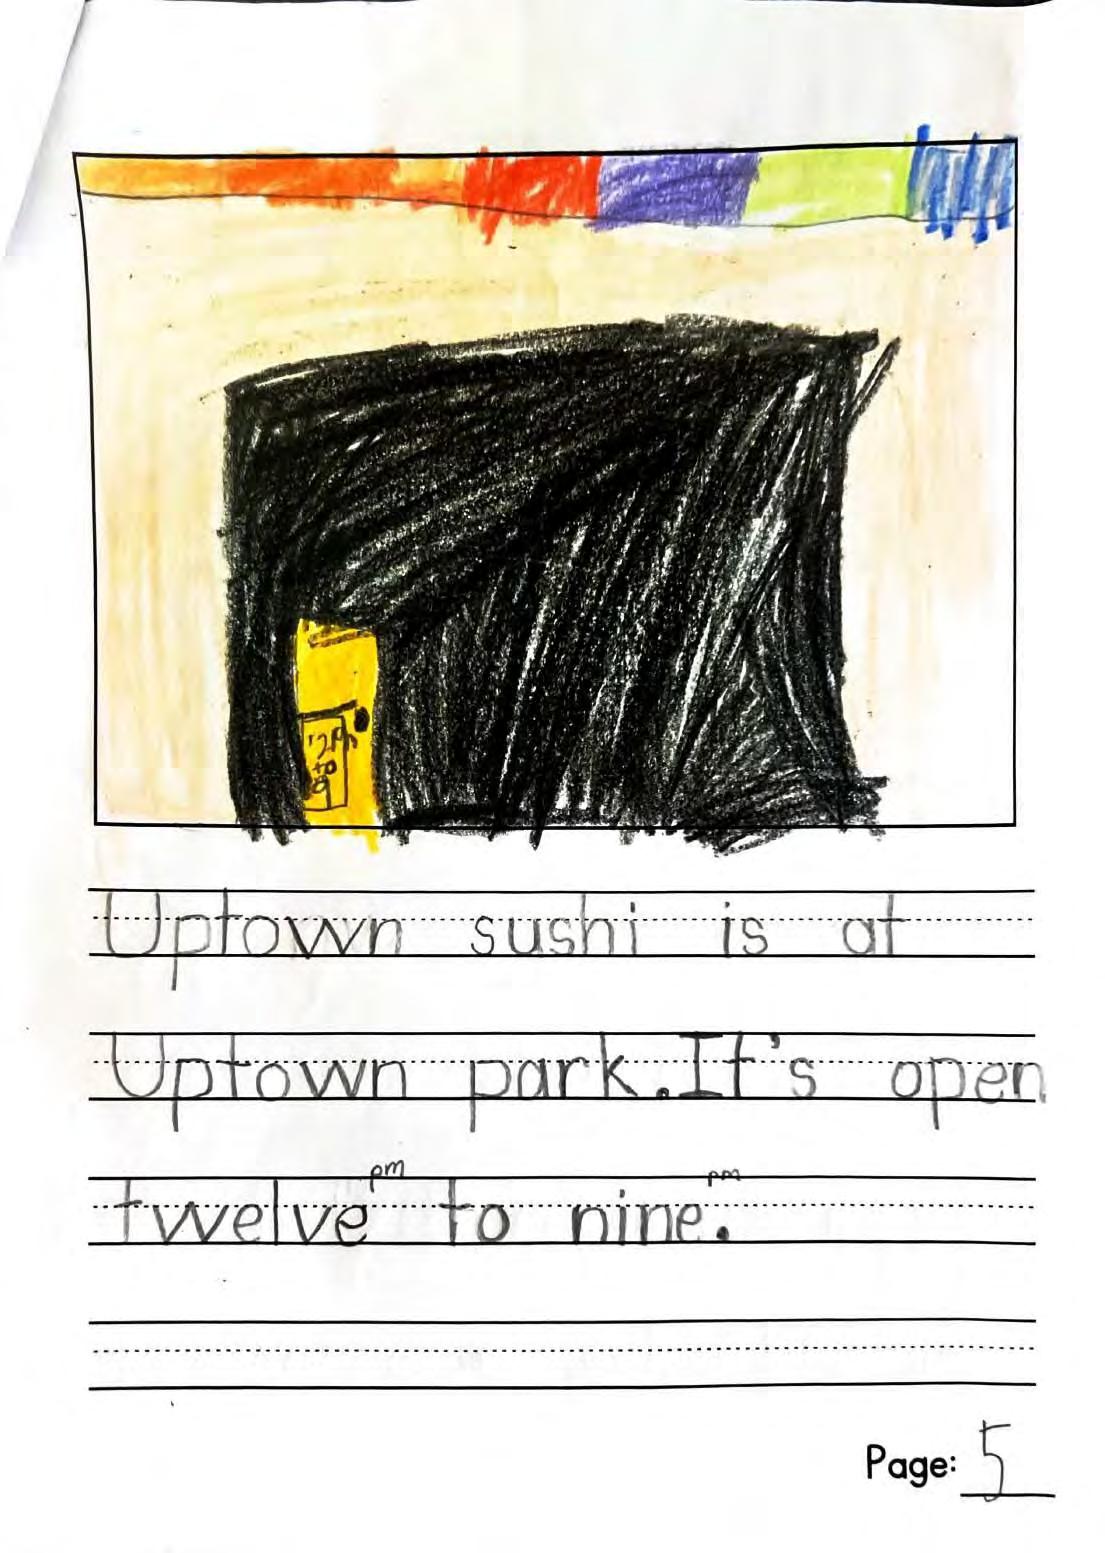 12pm
to
9
Uptown sushi is at
Uptown park. It's open
twelve pm to nine pm.
Page: 5